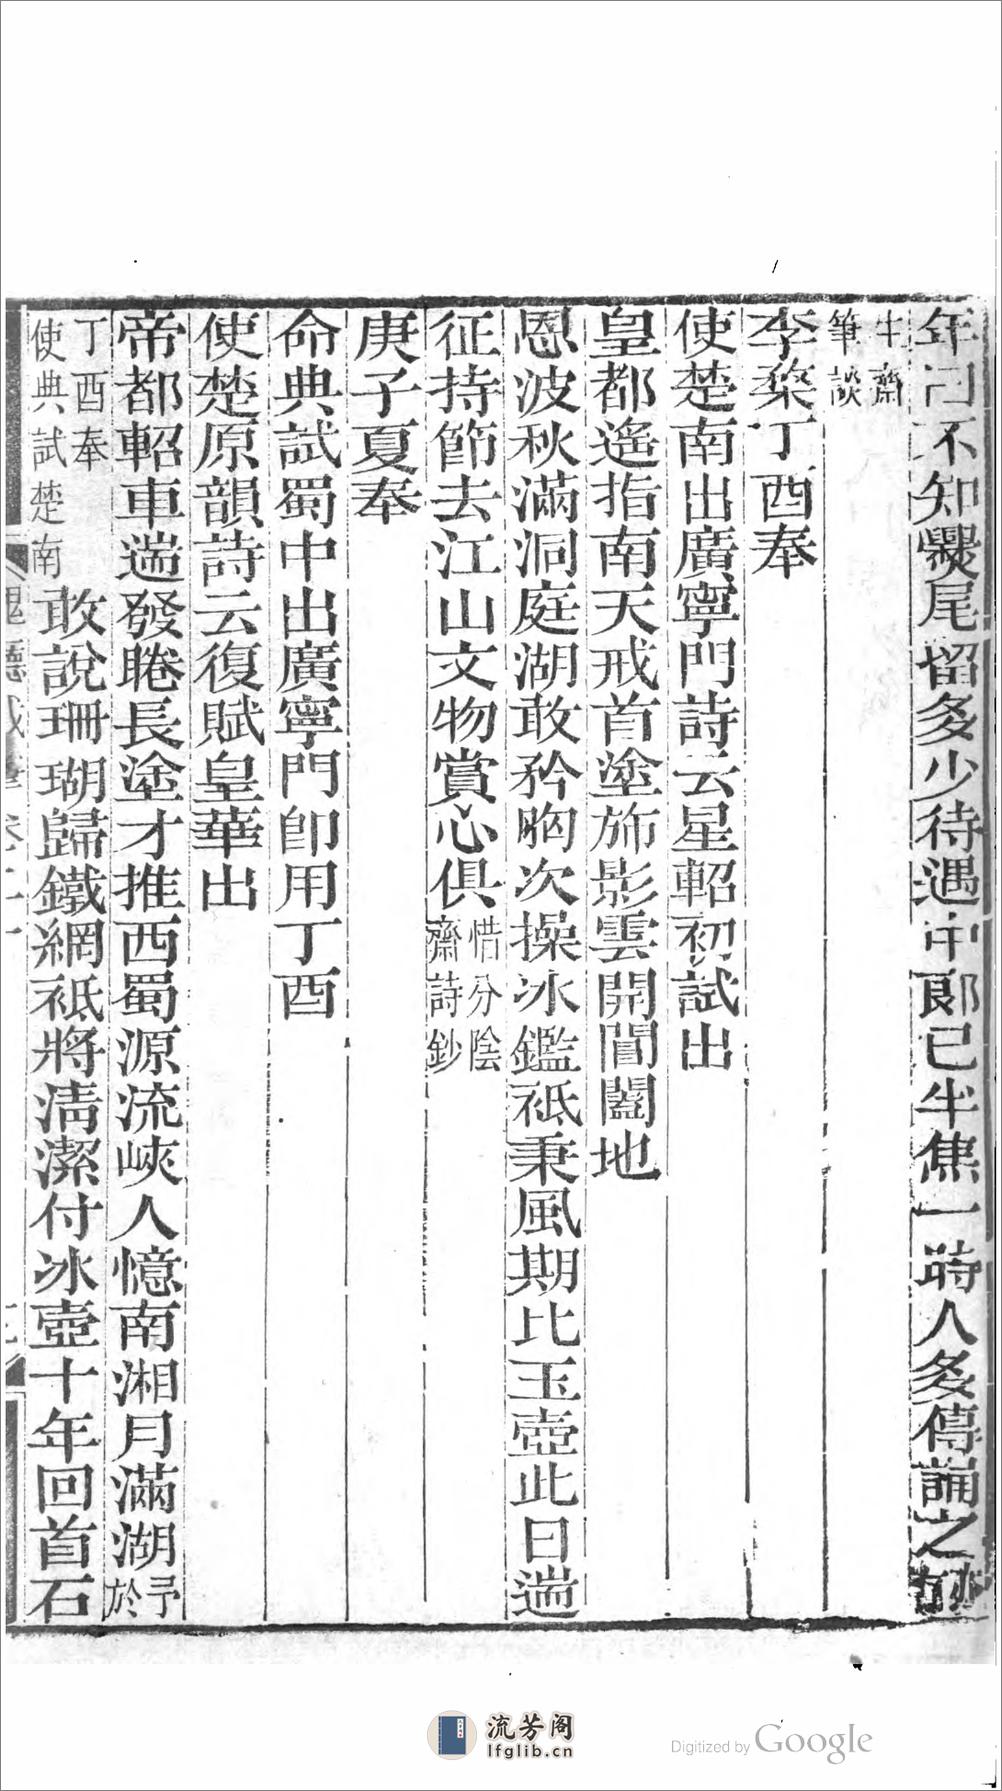 年問不知爨尾留多少待遇中郎已半焦一時人多傳誦之
牛齋
筆談
李棨丁酉奉
使楚南出廣寧門詩云星軺初試出
皇都遙指南天戒首塗斾影雲開閶闔地
恩波秋滿洞庭湖敢矜胸次操冰鑑祇秉風期比玉壺此日遄
征持節去江山文物賞心俱惜分陰
齋詩鈔
庚子夏奉
命典試蜀中出廣寧門即用丁酉
使楚原韻詩云復賦皇華出
帝都軺車遄發睠長塗才推西蜀源流峽人憶南湘月滿湖予
於
丁酉奉
使典試楚南敢說珊瑚歸鐵網祇將淸潔付冰壺十年回首石
流芳阁
lfglib.cn
Digitized by Google